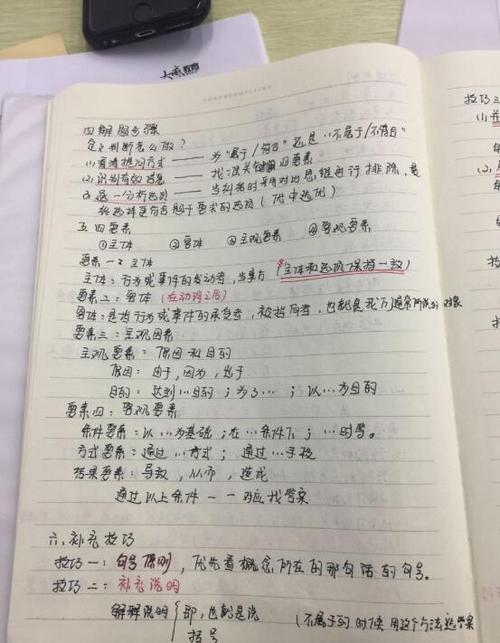 四 解题步骤
定义判断怎么做?
(1) 看清提问方式 —— 为"属于/符合"还是"不属于/不符合"
(2) 识别有效信息 —— 找:关键词和要素
(3) 逐一分析选项 —— 当纠结时要对比思维进行排除,是
挑选择更符合题干要求的选项(优中选优)
五 四要素
①主体 ②客体 ③主观要素 ④客观要素
要素一:主体
主体:行为或事件的发动者,当事方(主体和选项保持一致)
要素二:客体(在动词之后)
客体:是指行为或事件的承受者,被指向者,也就是我们通常所说的对象
要素三:主观因素
主观要素:原因和目的
原因:由于,因为,出于
目的:达到…目的;为了…;以…为目的
要素四:客观要素
条件要素:以…为基础;在…条件下;…时等。
方式要素:通过…方式;通过…手段
结果要素:导致,从而,造成
通过以上条件一一对应找答案
六、补充技巧
技巧一:句号原则,优先看概念所在的那句话的句号。
技巧二:补充说明
解释说明 即,也就是说
括号
(不属于的时候用这个方法选答案
技巧三
(1)